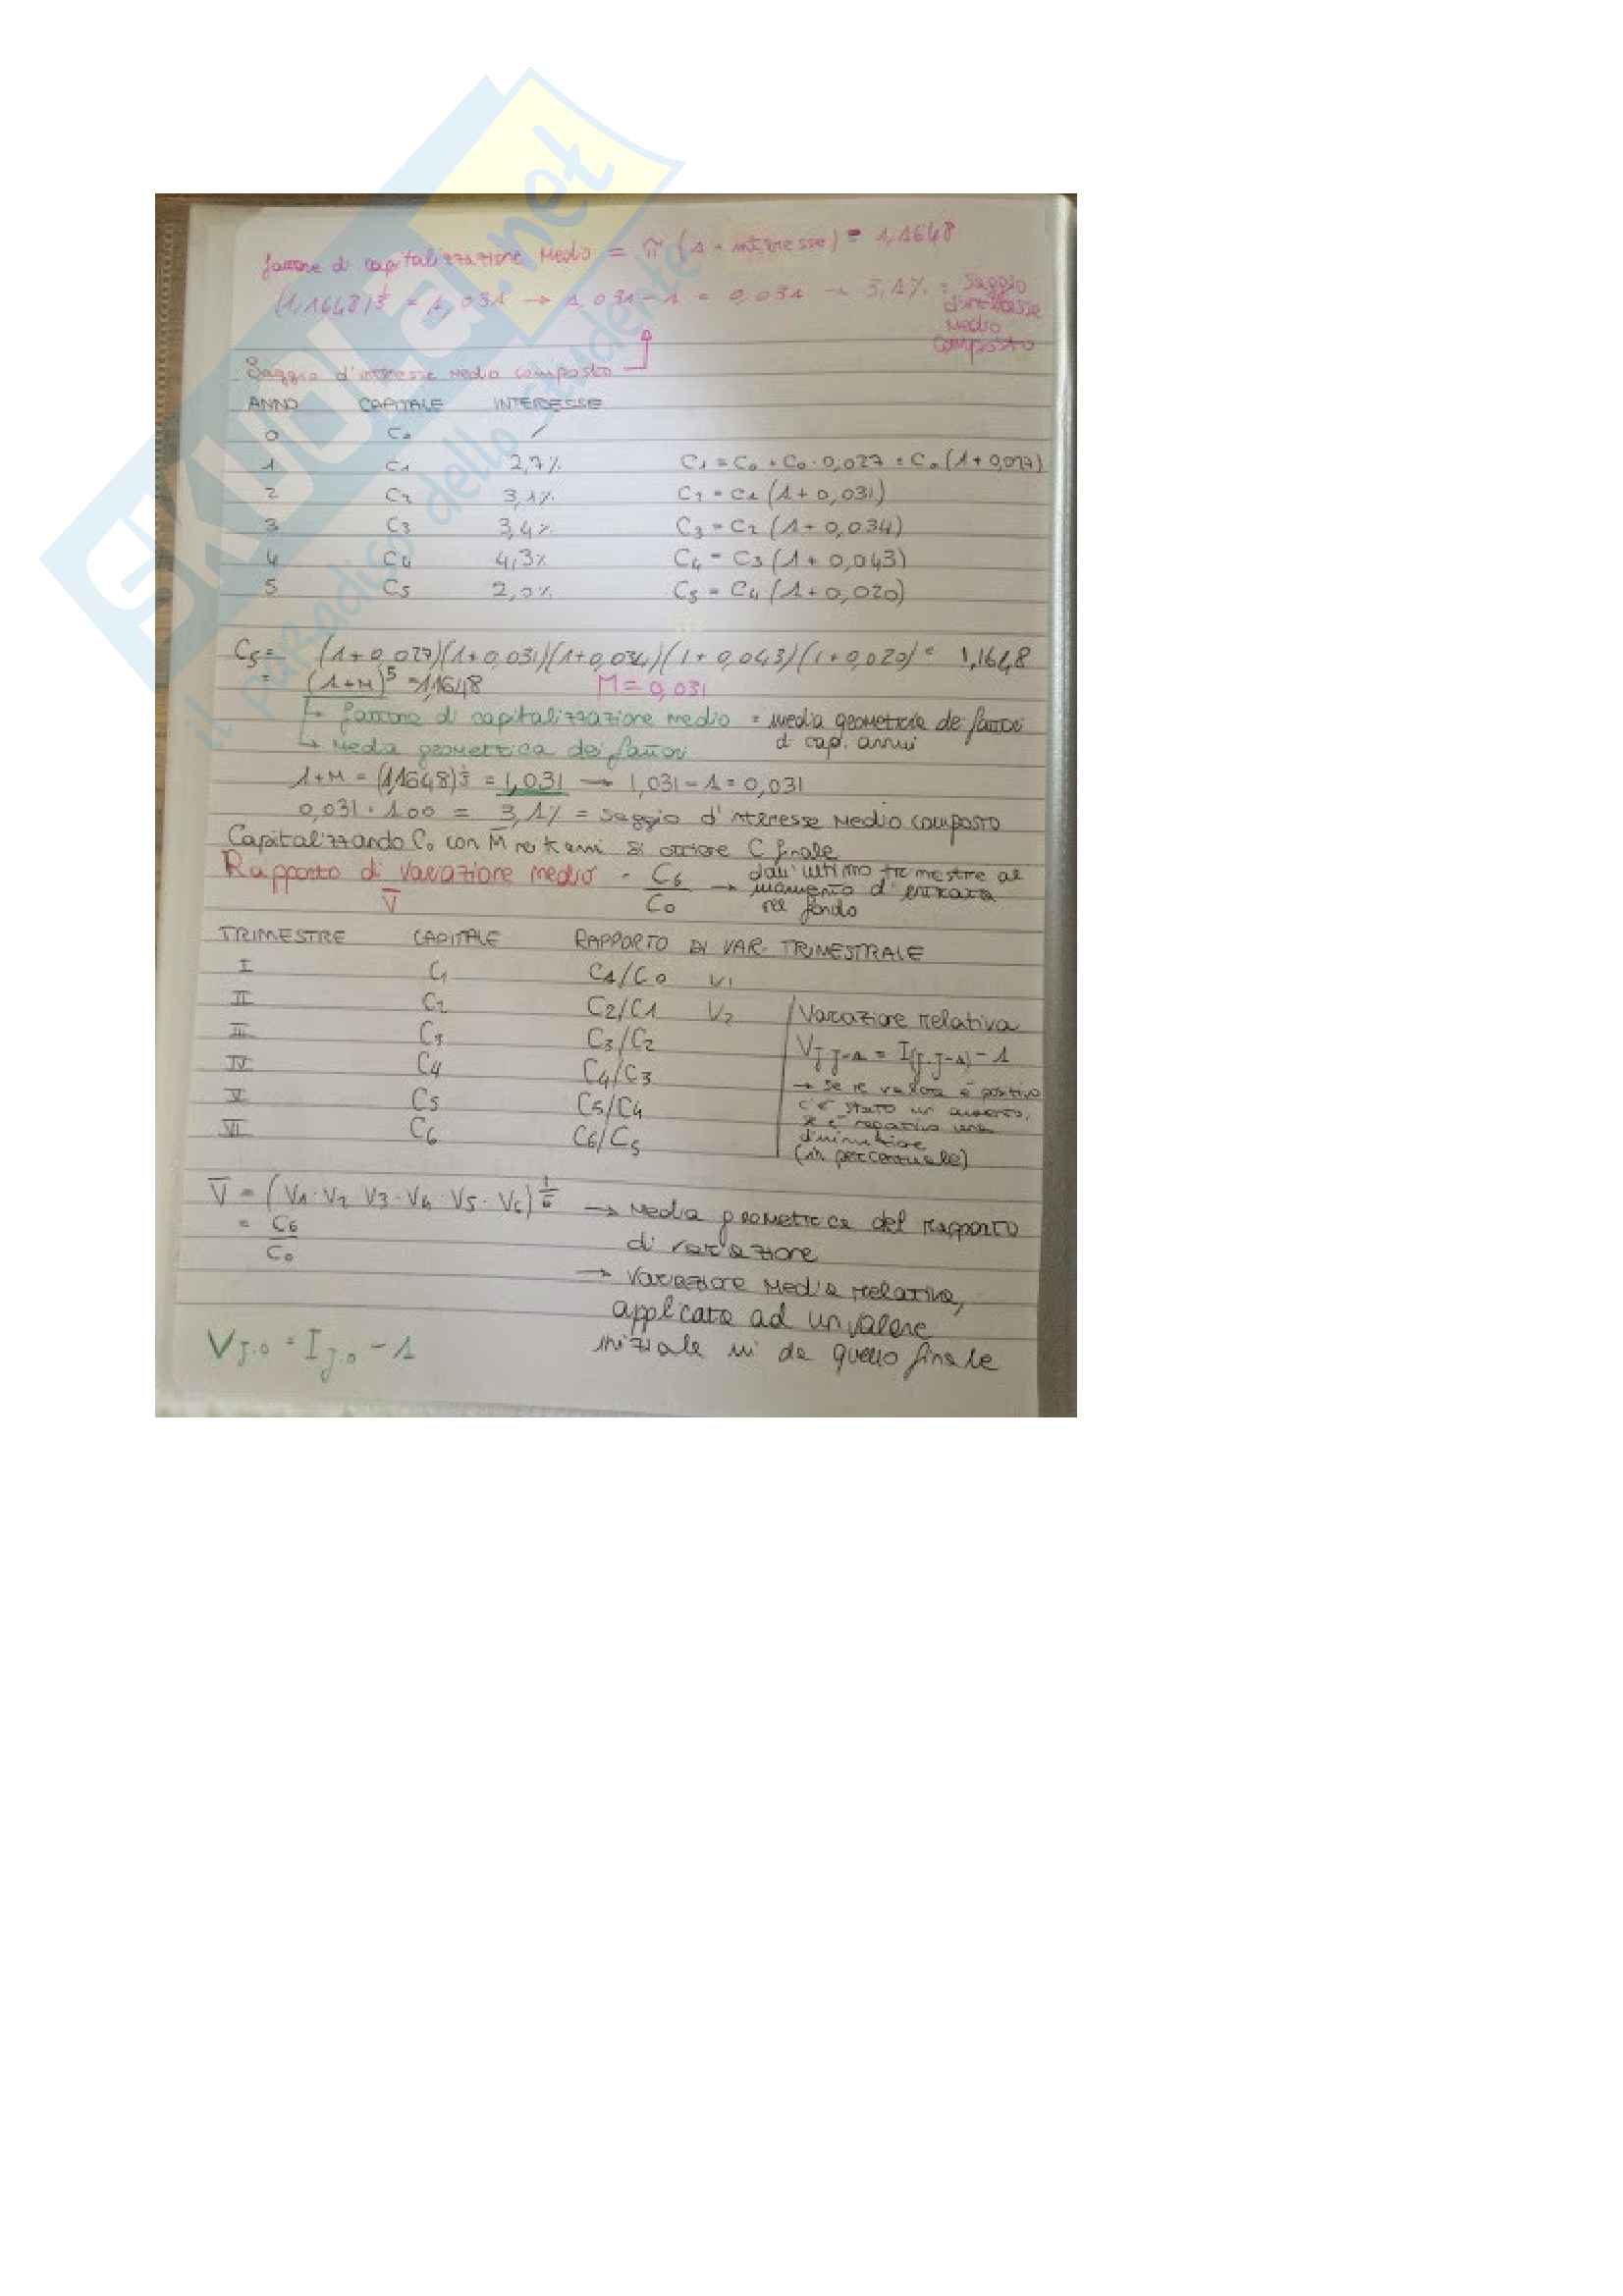 SKUOLA.net
il paradiso dello studente
fattore di capitalizzazione medio = π (1 + interesse) = 1,1648
(1,1648)^1/5 = 1,031 → 1,031 - 1 = 0,031 → 3,1% = saggio
d'interesse
medio
composto
Saggio d'interesse medio composto
ANNO CAPITALE INTERESSE
0 C0 /
1 C1 2,7% C1 = C0 + C0 · 0,027 = C0 (1 + 0,027)
2 C2 3,1% C2 = C1 (1 + 0,031)
3 C3 3,4% C3 = C2 (1 + 0,034)
4 C4 4,3% C4 = C3 (1 + 0,043)
5 C5 2,0% C5 = C4 (1 + 0,020)
C5 = (1 + 0,027)(1 + 0,031)(1 + 0,034)(1 + 0,043)(1 + 0,020) = 1,1648
= (1 + M)^5 = 1,1648 M = 0,031
↳ fattore di capitalizzazione medio = media geometrica dei fattori
di cap. annui
↳ media geometrica dei fattori
1 + M = (1,1648)^1/5 = 1,031 → 1,031 - 1 = 0,031
0,031 · 100 = 3,1% = saggio d'interesse medio composto
Capitalizzando C0 con M si ottiene C finale
Rapporto di variazione medio = C6/C0 → dall'ultimo trimestre al
momento d'entrata
nel fondo
V̅
TRIMESTRE CAPITALE RAPPORTO DI VAR. TRIMESTRALE
I C1 C1/C0 V1
II C2 C2/C1 V2
III C3 C3/C2
IV C4 C4/C3
V C5 C5/C4
VI C6 C6/C5
Variazione relativa
Vj,j-1 = I(j,j-1) - 1
→ se il valore è positivo
c'è stato un aumento,
se è negativo una
diminuzione
(in percentuale)
V̅ = (V1 · V2 · V3 · V4 · V5 · V6)^1/6 → media geometrica del rapporto
di variazione
= C6/C0
→ variazione media relativa,
applicata ad un valore
iniziale mi da quello finale
Vj,0 = Ij,0 - 1